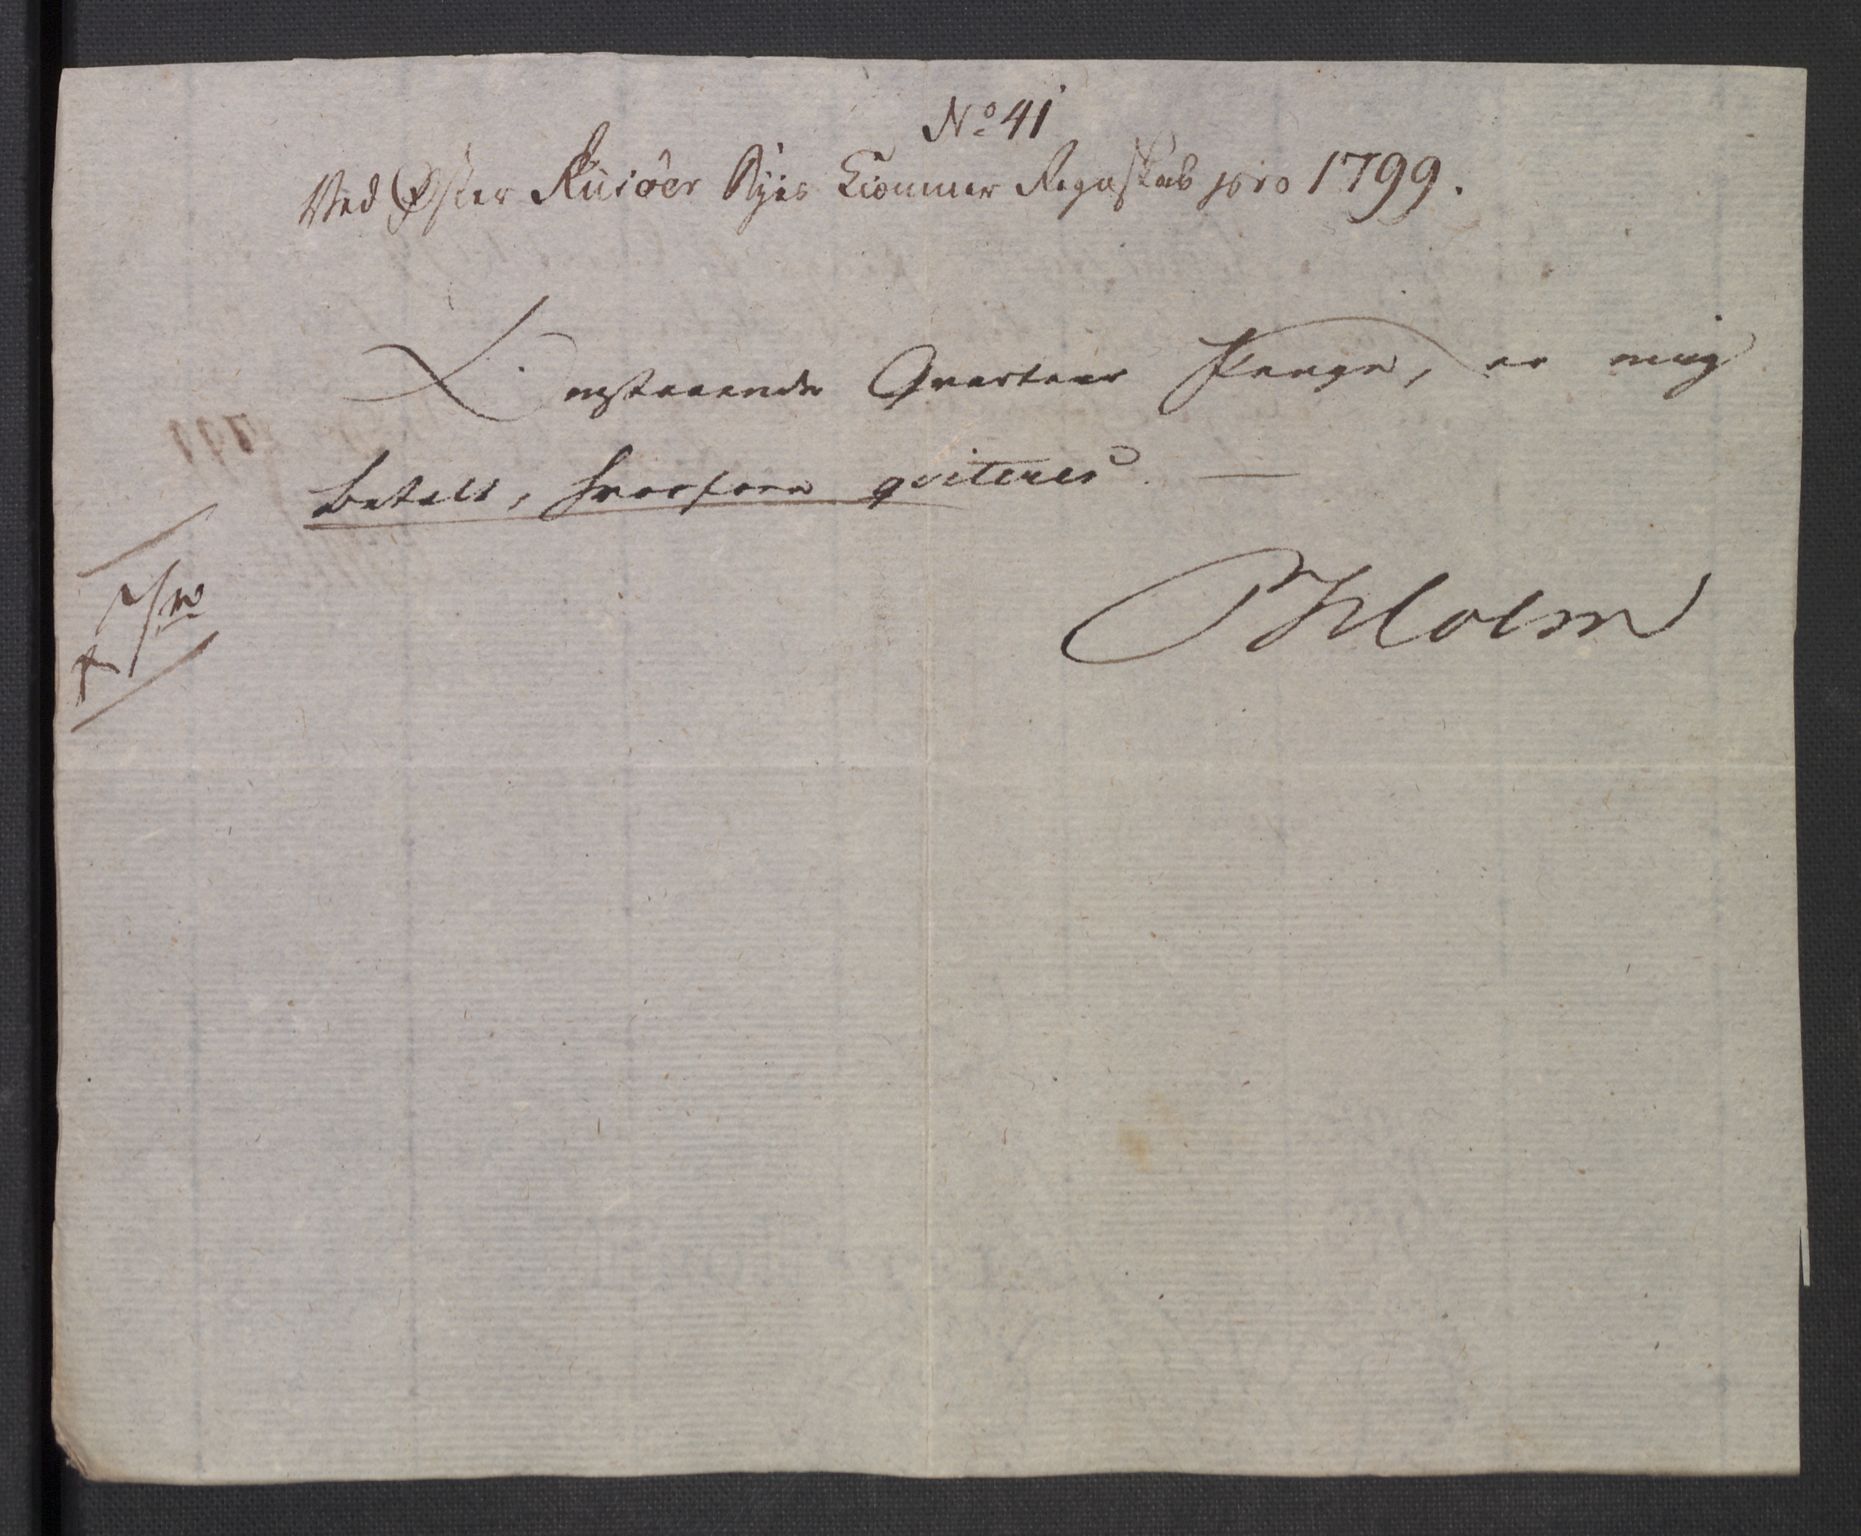 No 41
Ved Øster Riisöer Byes Kiemner Regnskab pro 1799.
Omstaaende Qvarteer Penge, er mig
betalt, hvorfore qviteres. —
Holm